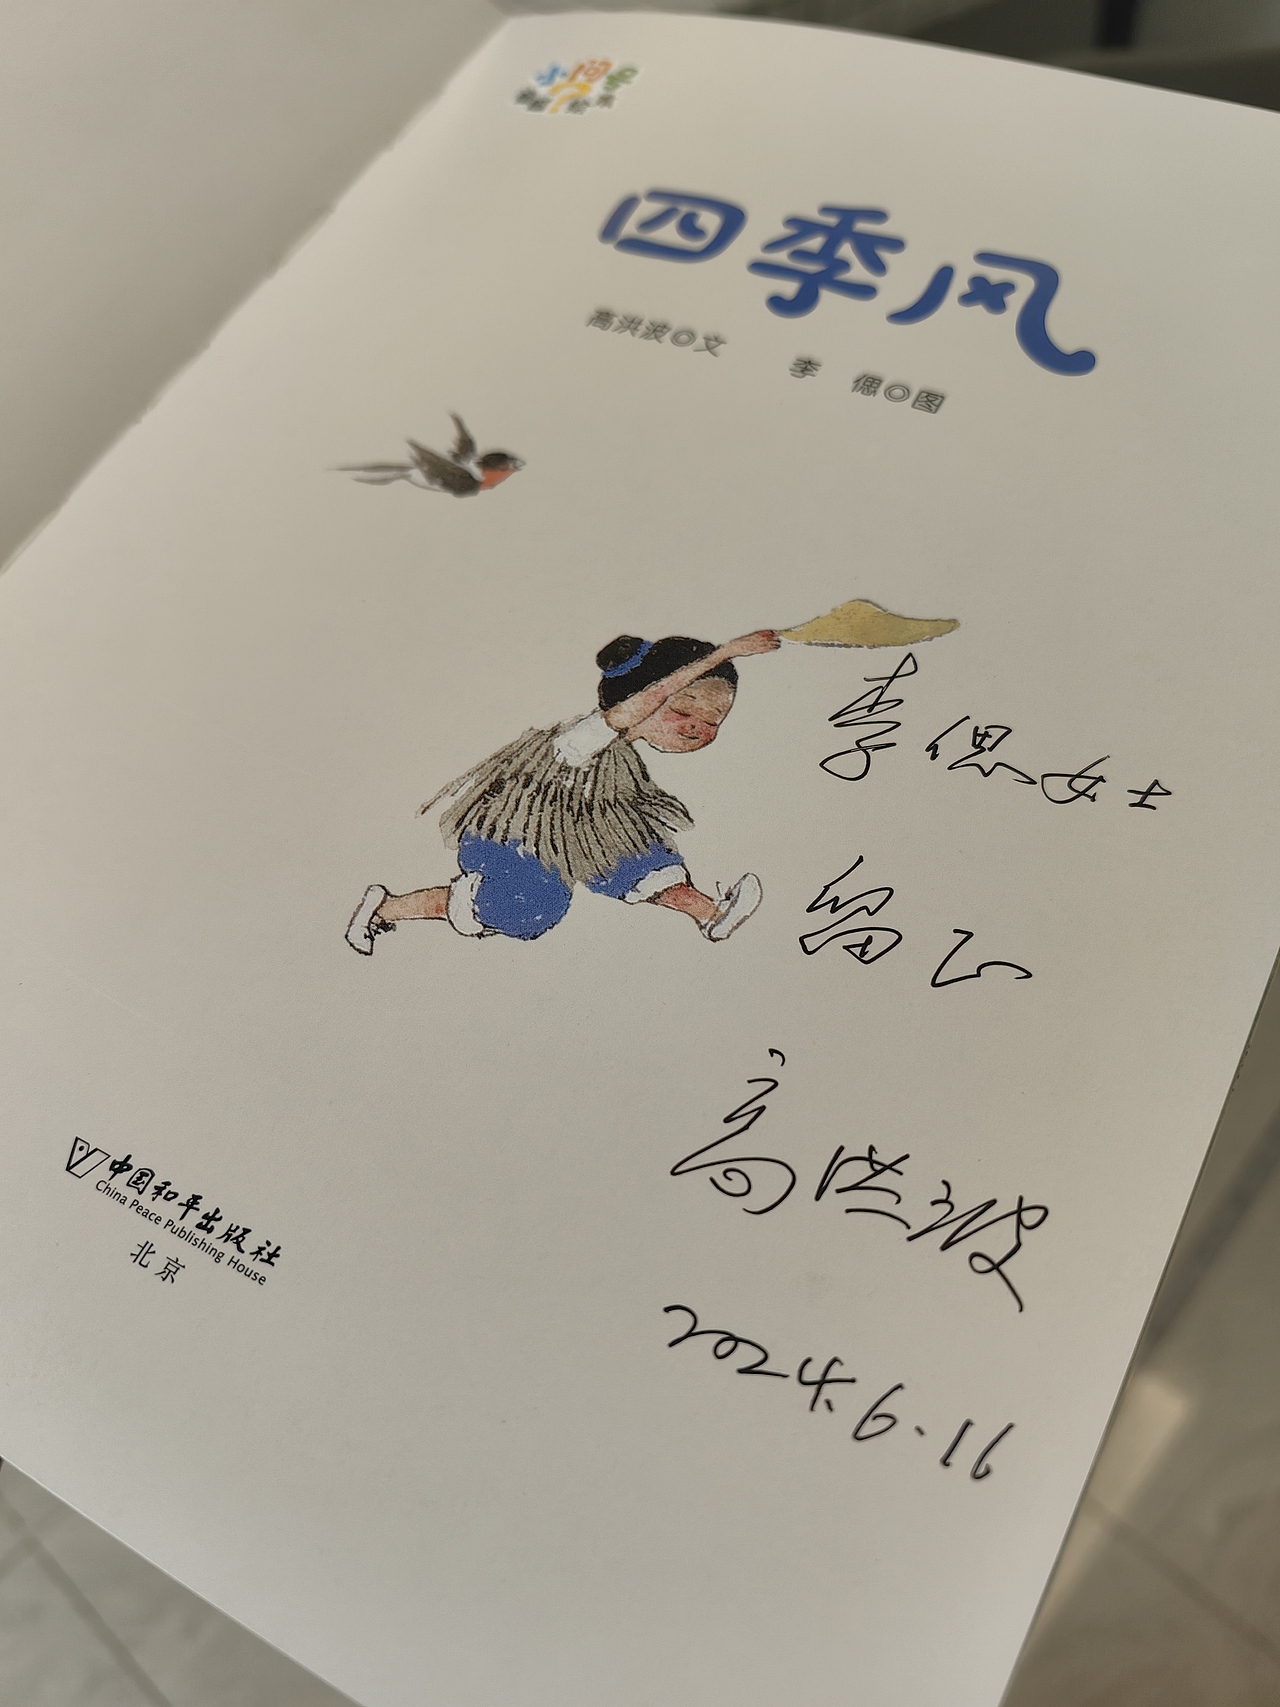 小问号
四季风
高洪波◎文 李 偲◎图
李偲女士
留正
高洪波
2024.6.16
中国和平出版社
China Peace Publishing House
北京